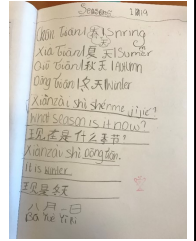 Seasons 2019
Chūn Tiān|春天|Spring
Xià Tiān|夏天|Sumer
Qiū Tiān|秋天|Autumn
Dōng Tiān|冬天|Winter
Xiànzài shì shénme jìjié?
What season is it now?
现在是什么季节?
Xiànzài shì dōngtiān.
It is winter.
现在是冬天
八月一日
Bā Yuè Yī Rì